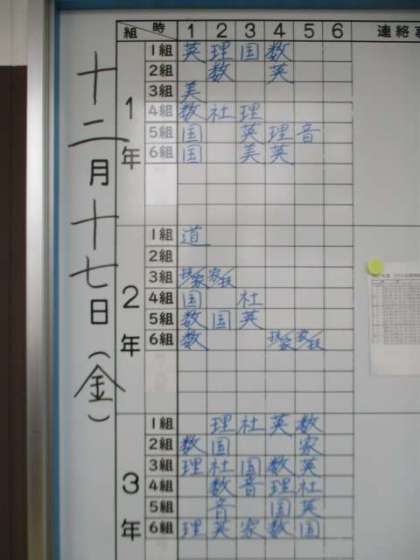 十二月十七日(金)
組 時 1 2 3 4 5 6 連絡事
1年
1組 英 理 国 数
2組 数 英
3組 美
4組 数 社 理
5組 国 英 理 音
6組 国 美 英
2年
1組 道
2組
3組
4組 国 社
5組 数 国 英
6組 数
3年
1組 理 社 英 数
2組 数 国 家
3組 理 社 国 数 英
4組 数 音 理 社
5組 音 国 英
6組 理 英 家 数 国